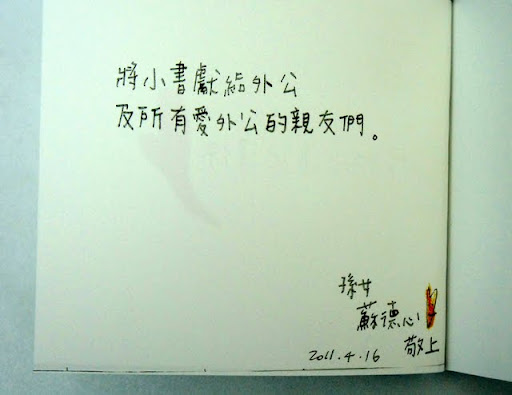 將小書獻給外公
及所有愛外公的親友們。
孫女
蘇德心
敬上
2011.4.16